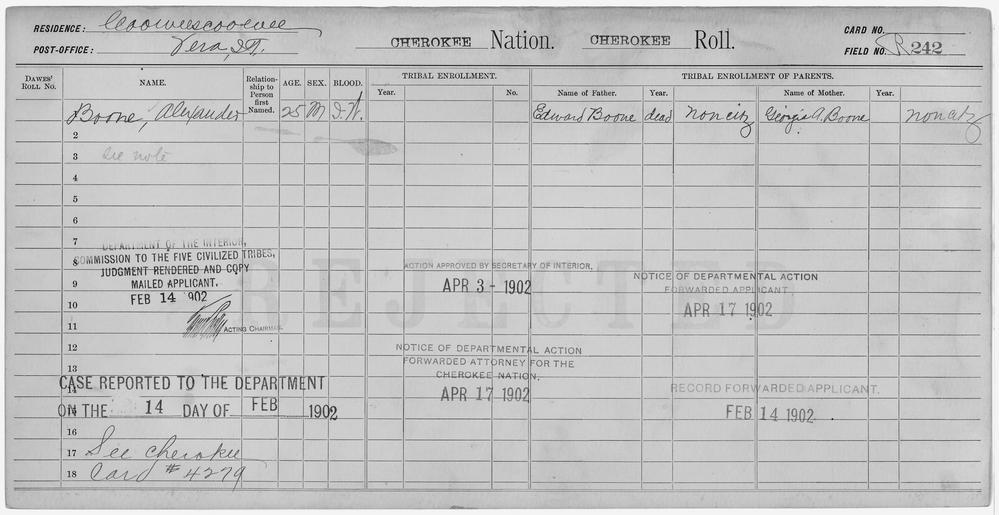 RESIDENCE: Coowescoowee
POST-OFFICE: Vera, I.T.
CHEROKEE Nation. CHEROKEE Roll.
CARD NO.
FIELD NO. R 242
DAWES' ROLL NO. NAME. Relationship to Person first Named. AGE. SEX. BLOOD. TRIBAL ENROLLMENT. Year. No. TRIBAL ENROLLMENT OF PARENTS. Name of Father. Year. Name of Mother. Year.
Boone, Alexander 25 M I.W. Edward Boone dead Non citz Georgia A. Boone non citz
2
3 See note
4
5
6
7
DEPARTMENT OF THE INTERIOR,
8 COMMISSION TO THE FIVE CIVILIZED TRIBES,
JUDGMENT RENDERED AND COPY
9 MAILED APPLICANT.
FEB 14 1902
10
11 ACTING CHAIRMAN.
REJECTED
ACTION APPROVED BY SECRETARY OF INTERIOR.
APR 3 - 1902
NOTICE OF DEPARTMENTAL ACTION
FORWARDED APPLICANT
APR 17 1902
12
NOTICE OF DEPARTMENTAL ACTION
FORWARDED ATTORNEY FOR THE
CHEROKEE NATION.
APR 17 1902
13
14 CASE REPORTED TO THE DEPARTMENT
ON THE 14 DAY OF FEB 1902
RECORD FORWARDED APPLICANT.
FEB 14 1902
16
17 See Cherokee
18 Card # 4279